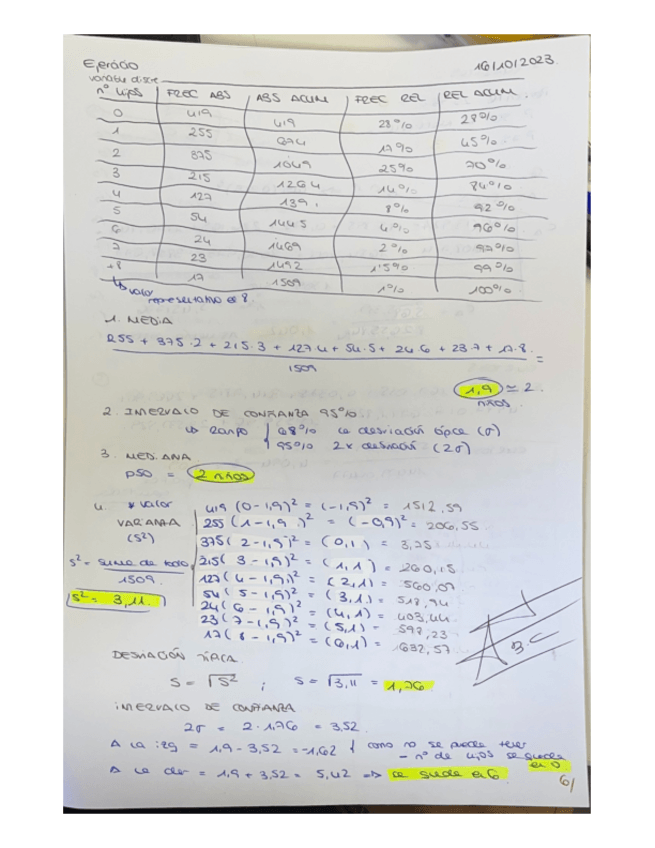 Ejercicio 16/10/2023
variable discre
nº hijos FREC ABS ABS ACUM FREC REL REL ACUM.
0 419 419 28% 28%
1 255 674 17% 45%
2 375 1049 25% 70%
3 215 1264 14% 84%
4 127 1391 8% 92%
5 54 1445 4% 96%
6 24 1469 2% 97%
7 23 1492 1'5% 99%
+8 17 1509 1% 100%
↳ valor
representativo es 8
1. MEDIA
255 + 375·2 + 215·3 + 127·4 + 54·5 + 24·6 + 23·7 + 17·8 =
1509
1,9 ≃ 2
niños
2. INTERVALO DE CONFIANZA 95%
↳ Rango 68% la desviación típica (σ)
95% 2x desviación (2σ)
3. MEDIANA
P50 = 2 niños
4. * valor 419 (0-1,9)² = (-1,9)² = 1512,59
VARIANZA 255 (1-1,9)² = (-0,9)² = 206,55
(S²) 375 (2-1,9)² = (0,1) = 3,75
S² = suma de todo 215 (3-1,9)² = (1,1) = 260,15
1509 127 (4-1,9)² = (2,1) = 560,07
S² = 3,11. 54 (5-1,9)² = (3,1) = 518,94
24 (6-1,9)² = (4,1) = 403,44
23 (7-1,9)² = (5,1) = 598,23
17 (8-1,9)² = (6,1) = 632,57
DESVIACIÓN TÍPICA
S = √S² ; S = √3,11 = 1,76
INTERVALO DE CONFIANZA
2σ = 2·1,76 = 3,52
A la izq = 1,9 - 3,52 = -1,62 } como no se puede tener
- nº de hijos se queda
en 0
A la der = 1,9 + 3,52 = 5,42 => se queda en 6
6/